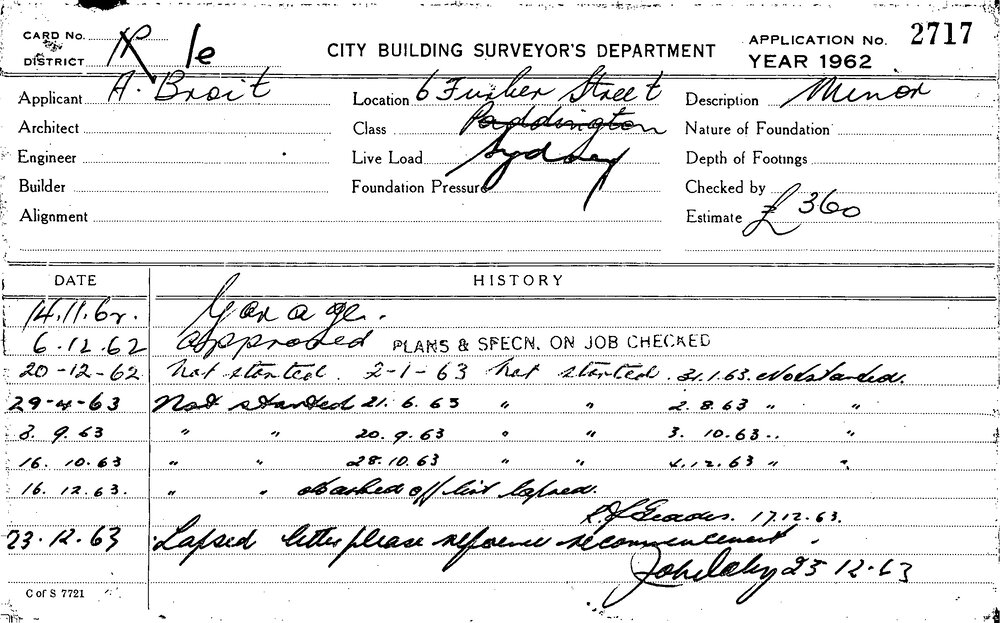 CARD No.
DISTRICT 1e
CITY BUILDING SURVEYOR'S DEPARTMENT
APPLICATION No. 2717
YEAR 1962
Applicant A. Broit
Location 6 Furber Street
Description Minor
Architect
Class Paddington
Nature of Foundation
Engineer
Live Load Sydney
Depth of Footings
Builder
Foundation Pressure
Checked by
Alignment
Estimate £ 360
DATE HISTORY
14.11.62. Garage.
6.12.62 approved PLANS & SPECN. ON JOB CHECKED
20-12-62 Not started. 2-1-63 Not started. 31.1.63. Not started.
29-4-63 Not started 21.6.63 " " 2.8.63 " "
3.9.63 " " 20.9.63 " " 3.10.63 .. "
16.10.63 " " 28.10.63 " " 4.12.63 " "
16.12.63. " " off list lapsed.
17.12.63.
23.12.63 Lapsed letter please reference recommencement.
23 12.63
C of S 7721